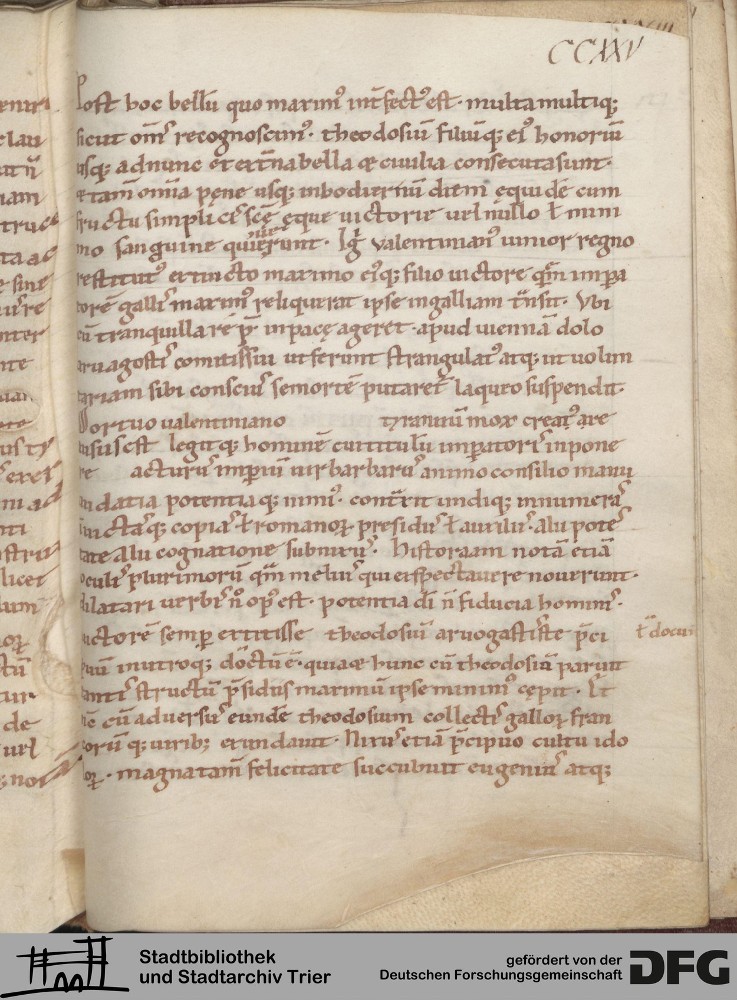 CCXXV
Post hoc bellū quo maximꝰ int̄fectꝰ est· multa multiq;
sicut om̄s recognoscimꝰ· theodosiū filiūq; eiꝰ honoriū
usq; ad nunc et ext̄na bella & civilia consecuta sunt·
& tam̄ om̄ia pęne usq; in hodiernū diem ęquidē cum
fructu simplici et scē ęque uictorie uel nullo ł mini
mo sanguine quierunt· Igr̄ Valentinianꝰ iunior regno
restitutꝰ extincto maximo eiꝰq; filio uictore quē impa
torē gallis maximꝰ reliquerat ipse in galliam t̄nsiit· Vbi
cū tranquilla rē p̄ in pacę ageret· apud uiennā dolo
aruagostis comitis sui ut ferunt strangulatꝰ atq; ut uolun
tariam sibi consciuisse mortē putaret̄ laqueo suspendit·
Mortuo valentiniano tyrannū mox creatꝰ are
ausus est legitq; hominē cui titulū imp̄atoris inpone
re acturus imperiū uir barbarus animo consilio manu
audatia potentiaq; nimiꝰ· cont̄xit undiq; innumeras
inuictasq; copias ł romanoꝝ presidiis ł auxiliis· alii pote
tate alii cognatione subnixus· Historaam notā etiā
oculis plurimorū quā melius qui ei spectauere nouerunt·
dilatari uerbis n̄ opꝰ est· potentia dī n̄ fiducia hominis·
uictorē semp̄ extitisse theodosiū aruogastis iste p̄ci
puū in utroq; doc̄tū ē· quia & hunc cū theodosiū paruit ł docum̄
tantis structū p̄sidiis maximū ipse minimꝰ cępit· Et
nc̄ cū adversus eundē theodosium collectis galloꝝ fran
corūq; uirib; exundauit· Nixus etiā p̄cipuo cultu ido
loꝝ· magna tam̄ felicitate succubuit eugeniū atq;
Stadtbibliothek
und Stadtarchiv Trier
gefördert von der
Deutschen Forschungsgemeinschaft
DFG